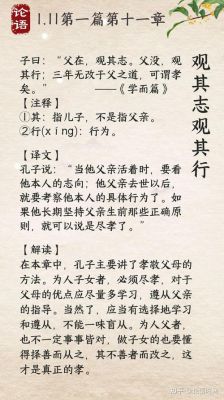 论语
1.11第一篇第十一章
观其志观其行
子曰：“父在，观其志。父没，观
其行；三年无改于父之道，可谓孝
矣。” ——《学而篇》
【注释】
①其：指儿子，不是指父亲。
②行(xíng)：行为。
【译文】
孔子说：“当他父亲活着时，要看
他本人的志向；他父亲去世以后，
就要考察他本人的具体行为了。如
果他长期坚持父亲生前那些正确原
则，就可以说是尽孝了。”
【解读】
在本章中，孔子主要讲了孝敬父母的
方法。为人子女者，必须尽孝，对于
父母的优点应尽量多学习，遵从父亲
的指导。当然了，应当有选择地学习
和遵从，不能一味盲从。为人父者，
也不一定事事皆对，做子女的也要懂
得择善而从之，其不善者而改之，这
才是真正的孝。